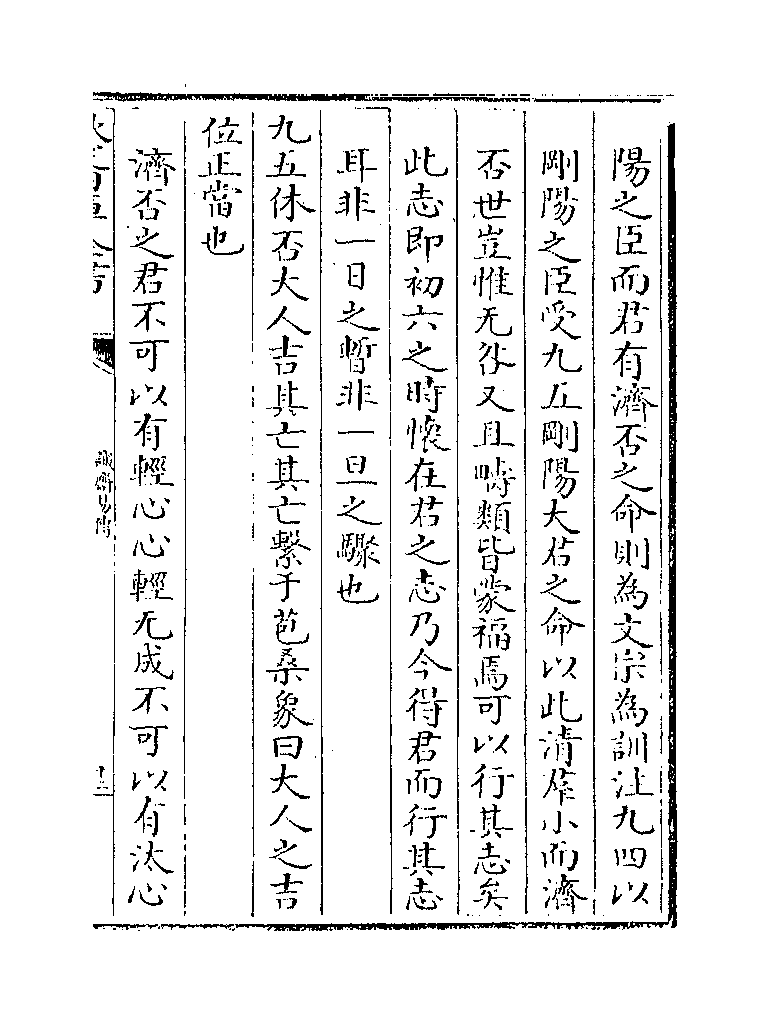 陽之臣而君有濟否之命則為文宗為訓注九四以
剛陽之臣受九五剛陽大君之命以此清羣小而濟
否世豈惟无咎又且疇類皆蒙福焉可以行其志矣
此志即初六之時懷在君之志乃今得君而行其志
耳非一日之暫非一旦之驟也
九五休否大人吉其亡其亡繫于苞桑象曰大人之吉
位正當也
濟否之君不可以有輕心心輕无成不可以有汰心
誠齋易傳
十三